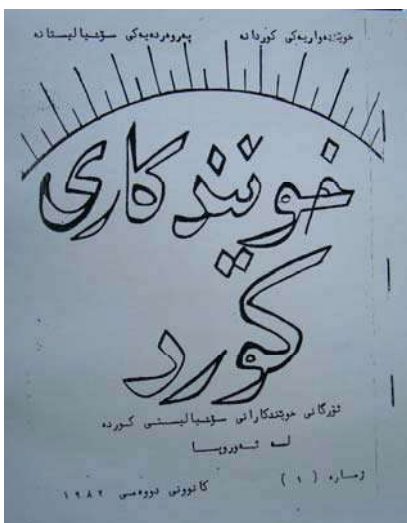 خوێندەواریەکی کوردانە پەروەردەیەکی سۆشیالیستانە
خوێندکاری
کورد
ئۆرگانی خوێندکارانی سۆشیالیستی کوردە
لە ئەوروپا
ژمارە ( ١ ) کانوونی دووەمی ١٩٨٢